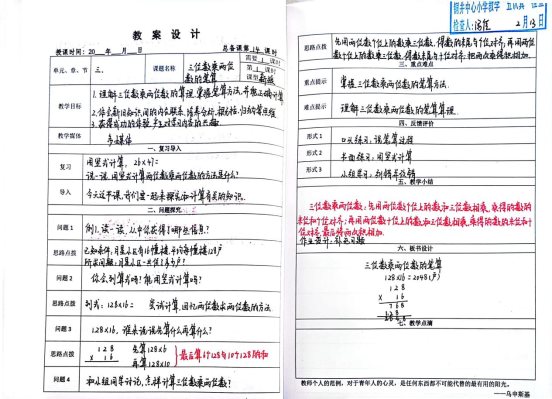 教 案 设 计
授课时间: 20 年 月 日
总备课第 14 课时
单元、章、节
三、
课题名称
三位数乘两位数的笔算
需要 1 课时
第 1 课时
课型 新授
教学目标
1. 理解三位数乘两位数的算理, 掌握笔算方法, 并能正确计算
3. 获得成功的体验
教学媒体
多媒体
一、复习导入
复习
用竖式计算, 26×41=
说一说, 用竖式计算两位数乘两位数的方法是什么?
导入
今天这节课, 我们就一起来探究和计算有关的知识。
二、问题探究
问题 1
例1. 读一读, 从中你获得了哪些信息?
思路点拨
问题 2
你会列算式吗? 能用竖式计算吗?
思路点拨
列式: 128×16= 尝试计算, 回忆两位数乘两位数的方法
问题 3
128×16, 谁来说一说先算什么再算什么?
思路点拨
1 2 8 先算128×6
× 1 6 再算128×10
最后算6个128与10个128的和
问题 4
和小组同学讨论, 怎样计算三位数乘两位数?
银井中心小学数学
检查人:
2月13日
思路点拨
先用两位数个位上的数乘三位数, 得数的末尾与个位对齐, 再用两位数十位上的数乘三位数, 得数末尾与十位对齐, 把两次乘得的积相加。
三、重点难点
重点提示
掌握三位数乘两位数的笔算方法.
难点提示
理解三位数乘两位数的笔算算理.
四、反馈评价
形式 1
口头练习: 说笔算过程
形式 2
书面练习: 用竖式计算
形式 3
小组学习: 判错并改错
五、教学小结
三位数乘两位数, 先用两位数个位上的数和三位数相乘, 乘得的数的末位和个位对齐; 再用两位数十位上的数和三位数相乘, 乘得的数的末位和十位对齐, 最后将两次积相加.
作业设计:
六、板书设计
三位数乘两位数的笔算
128×16=2048(户)
1 2 8
× 1 6
7 6 8
1 2 8
七、教学点滴
教师个人的范例，对于青年人的心灵，是任何东西都不可能代替的最有用的阳光。
——乌申斯基